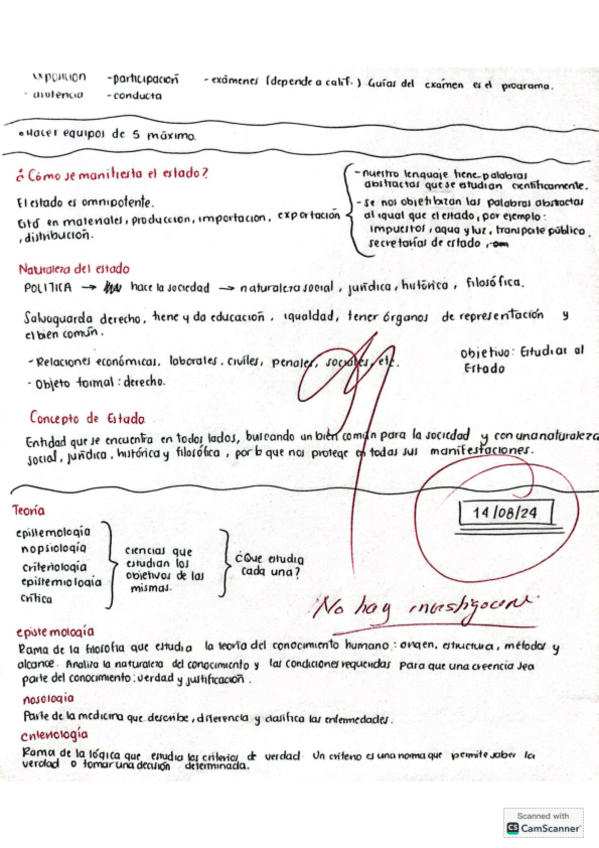 -participación - exámenes (depende a calif.) Guías del exámen es el programa.
- asistencia - conducta
• Hacer equipos de 5 máximo.
¿Cómo se manifiesta el estado?
El estado es omnipotente.
Está en materiales, producción, importación, exportación
, distribución.
- nuestro lenguaje tiene palabras
abstractas que se estudian científicamente.
- Se nos objetibizan las palabras abstractas
al igual que el estado, por ejemplo:
impuestos, agua y luz, transpote público,
secretarías de estado,
Naturaleza del estado
POLITICA → hace la sociedad → naturaleza social, jurídica, histórica, filosófica.
Salvaguarda derecho, tiene y da educación, igualdad, tener órganos de representación y
el bien común.
- Relaciones económicas, laborales, civiles, penales, sociales, etc.
- Objeto formal: derecho.
objetivo: Estudiar al
Estado
Concepto de Estado
Entidad que se encuentra en todos lados, buscando un bien común para la sociedad y con una naturaleza
social, jurídica, histórica y filosófica, por lo que nos protege en todas sus manifestaciones.
14/08/24
Teoría
epistemología
nopsiología
criteriología
epistemiología
crítica
ciencias que
estudian los
objetivos de las
mismas.
¿Que estudia
cada una?
No hay
epistemología
Rama de la filosofía que estudia la teoría del conocimiento humano: origen, estructura, métodos y
alcance. Analiza la naturaleza del conocimiento y las condiciones requeridas para que una creencia sea
parte del conocimiento: verdad y justificación.
nosología
Parte de la medicina que describe, diferencia y clasifica las enfermedades.
criteriología
Rama de la lógica que estudia los criterios de verdad Un criterio es una norma que permite saber la
verdad o tomar una decisión determinada.
Scanned with
CS CamScanner